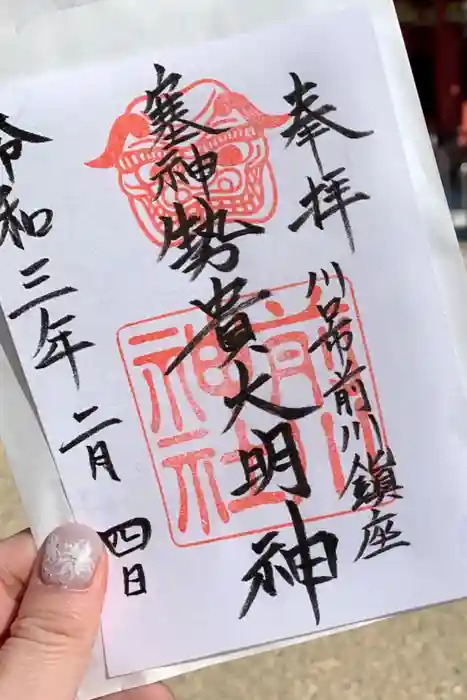 奉拝
川口市前川鎮座
塞神勢貴大明神
前川神社
令和三年二月四日